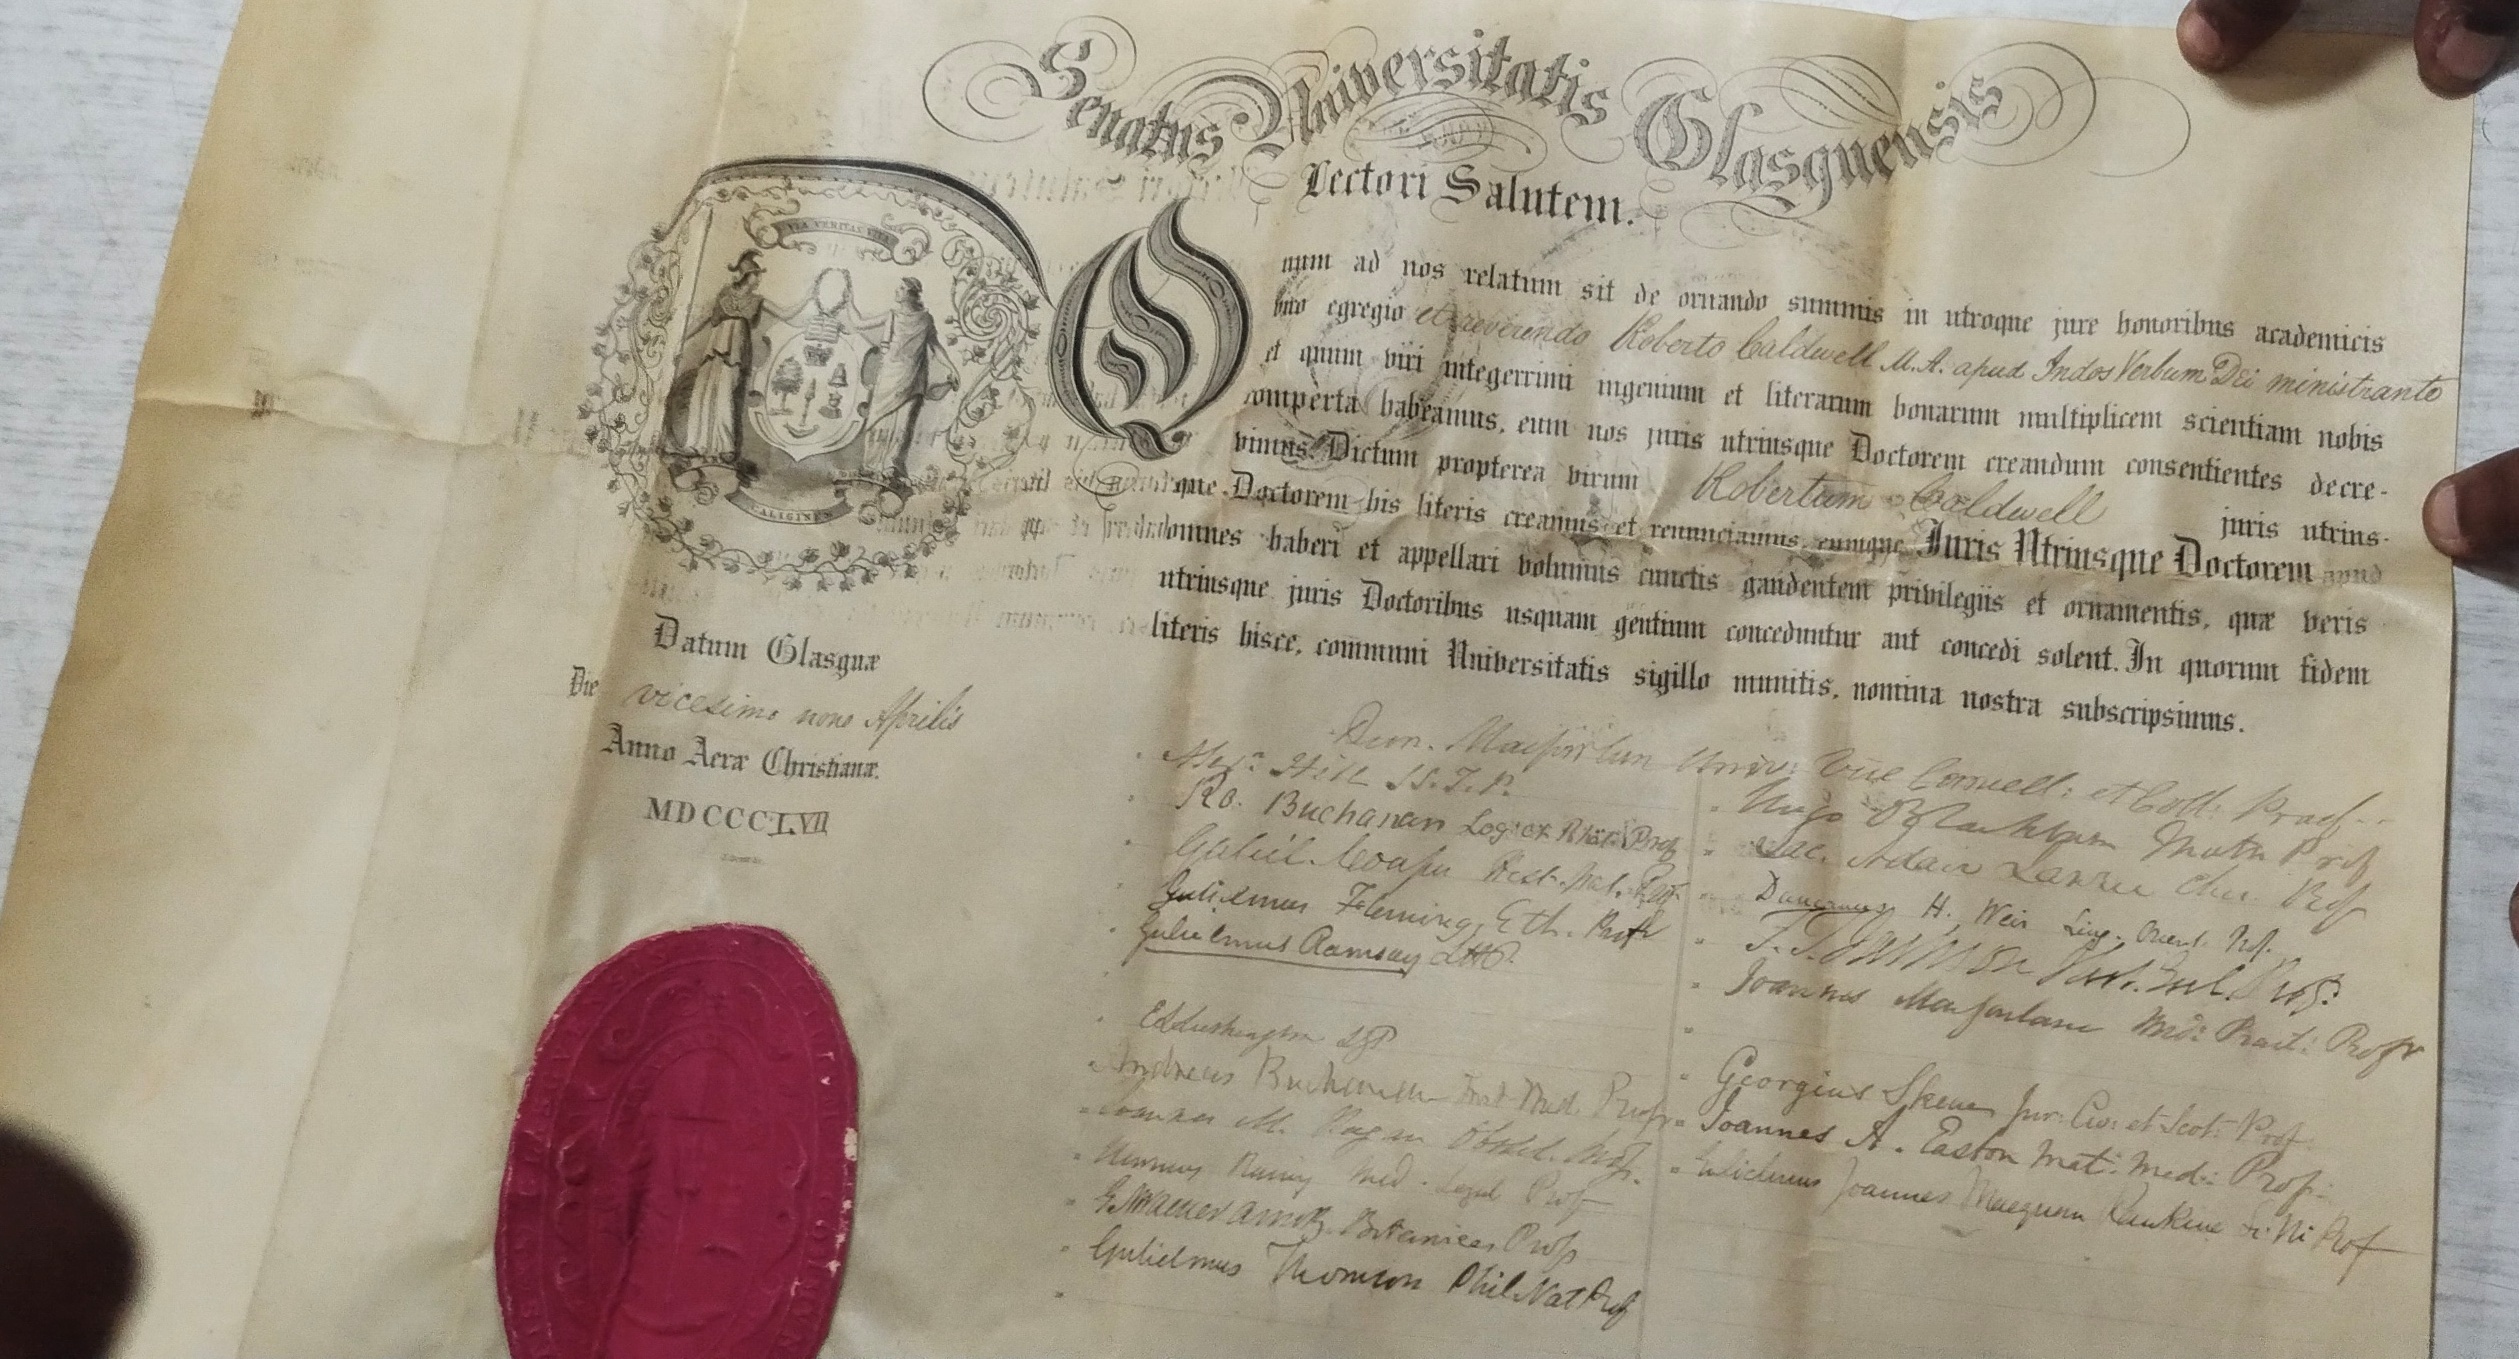 Senatus Universitatis Glasguensis
Lectori Salutem.
VIA VERITAS VITA
CALIGINE
Quum ad nos relatum sit de ornando summis in utroque jure honoribus academicis
viro egregio et reverendo Roberto Caldwell M.A. apud Indos Verbum Dei ministrante
et quum viri integerrimi ingenium et literarum bonarum multiplicem scientiam nobis
comperta habeamus, eum nos juris utriusque Doctorem creandum consentientes decre-
vimus. Dictum propterea virum Robertum Caldwell juris utrius-
que Doctorem his literis creamus et renunciamus, eumque Juris Utriusque Doctorem apud
omnes haberi et appellari volumus cunctis gaudentem privilegiis et ornamentis, quæ veris
utriusque juris Doctoribus usquam gentium conceduntur aut concedi solent. In quorum fidem
literis hisce, communi Universitatis sigillo munitis, nomina nostra subscripsimus.
Datum Glasguæ
Die vicesimo nono Aprilis
Anno Aeræ Christianæ
MDCCCLVII
Dun. Macfarlan Univ: Vice Cancell: et Coll: Praef.
Alexr. Hill SS.T.P.
Ro. Buchanan Log: et Rhet: Prof
Gulielmus Fleming, Eth. Prof
Gulielmus Ramsay
E L Lushington
Andreas Buchanan Inst. Med. Prof
Joannes M. Pagan Obstet. Prof.
Harricus Rainy Med. Legal Prof
G A Walker Arnott Botanices Prof
Gulielmus Thomson Phil. Nat Prof
Hugo Blackburn Math Prof
Duncanus H. Weir Ling. Orient. Prof.
Joannes Macfarlane Med: Pract: Profr
Georgius Skene Jur: Civ: et Scot: Prof
Joannes A. Easton Mat: Med: Prof:
Gulielmus Joannes Macquorn Rankine Prof